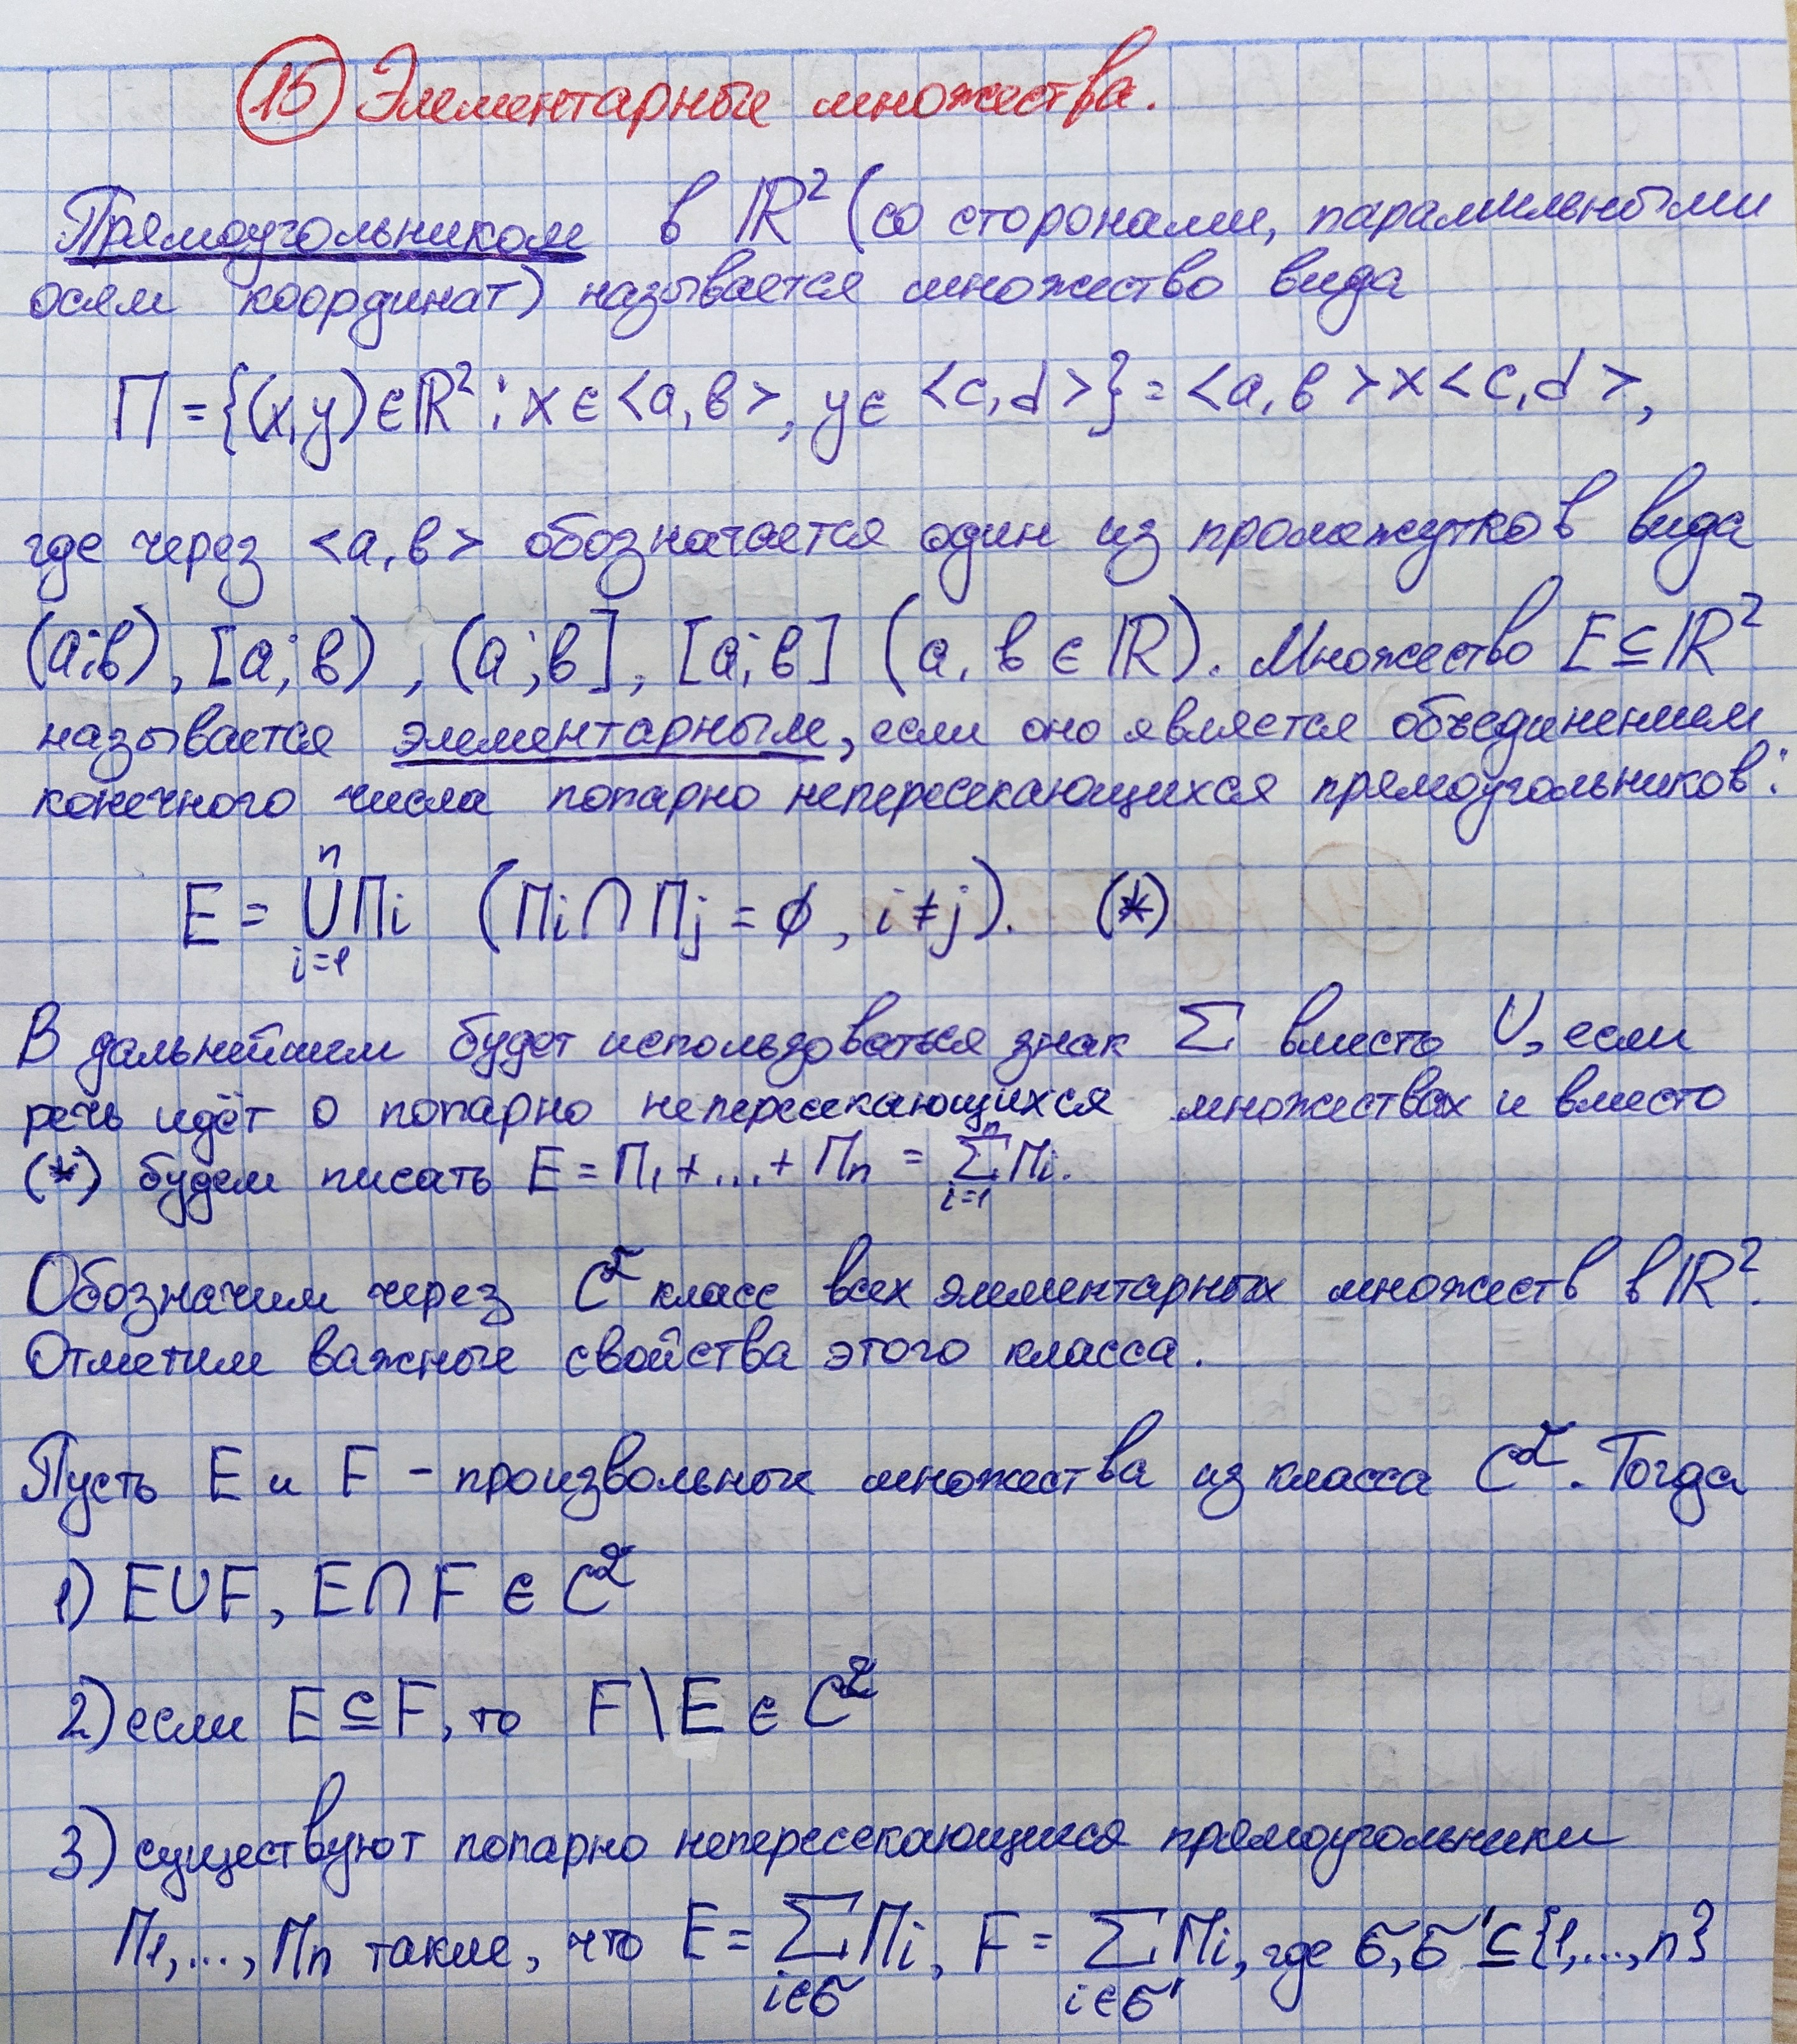 15 Элементарные множества.
Прямоугольником в ℝ² (со сторонами, параллельными
осям координат) называется множество вида
П = {(x,y) ∈ ℝ² : x ∈ <a,b>, y ∈ <c,d>} = <a,b> x <c,d>,
где через <a,b> обозначается один из промежутков вида
(a;b), [a;b), (a;b], [a;b] (a, b ∈ ℝ). Множество E ⊆ ℝ²
называется элементарным, если оно является объединением
конечного числа попарно непересекающихся прямоугольников:
E = ⋃ⁿᵢ₌₁ Пi (Пi ∩ Пj = ∅, i ≠ j). (*)
В дальнейшем будет использоваться знак Σ вместо ∪, если
речь идёт о попарно непересекающихся множествах и вместо
(*) будем писать E = П₁ + ... + Пn = Σⁿᵢ₌₁ Пi.
Обозначим через C² класс всех элементарных множеств в ℝ².
Отметим важные свойства этого класса.
Пусть E и F – произвольные множества из класса C². Тогда
1) E∪F, E∩F ∈ C²
2) если E ⊆ F, то F\E ∈ C²
3) существуют попарно непересекающиеся прямоугольники
П₁,...,Пn такие, что E = Σ_{i∈σ} Пi, F = Σ_{i∈σ'} Пi, где σ,σ' ⊆ {1,...,n}